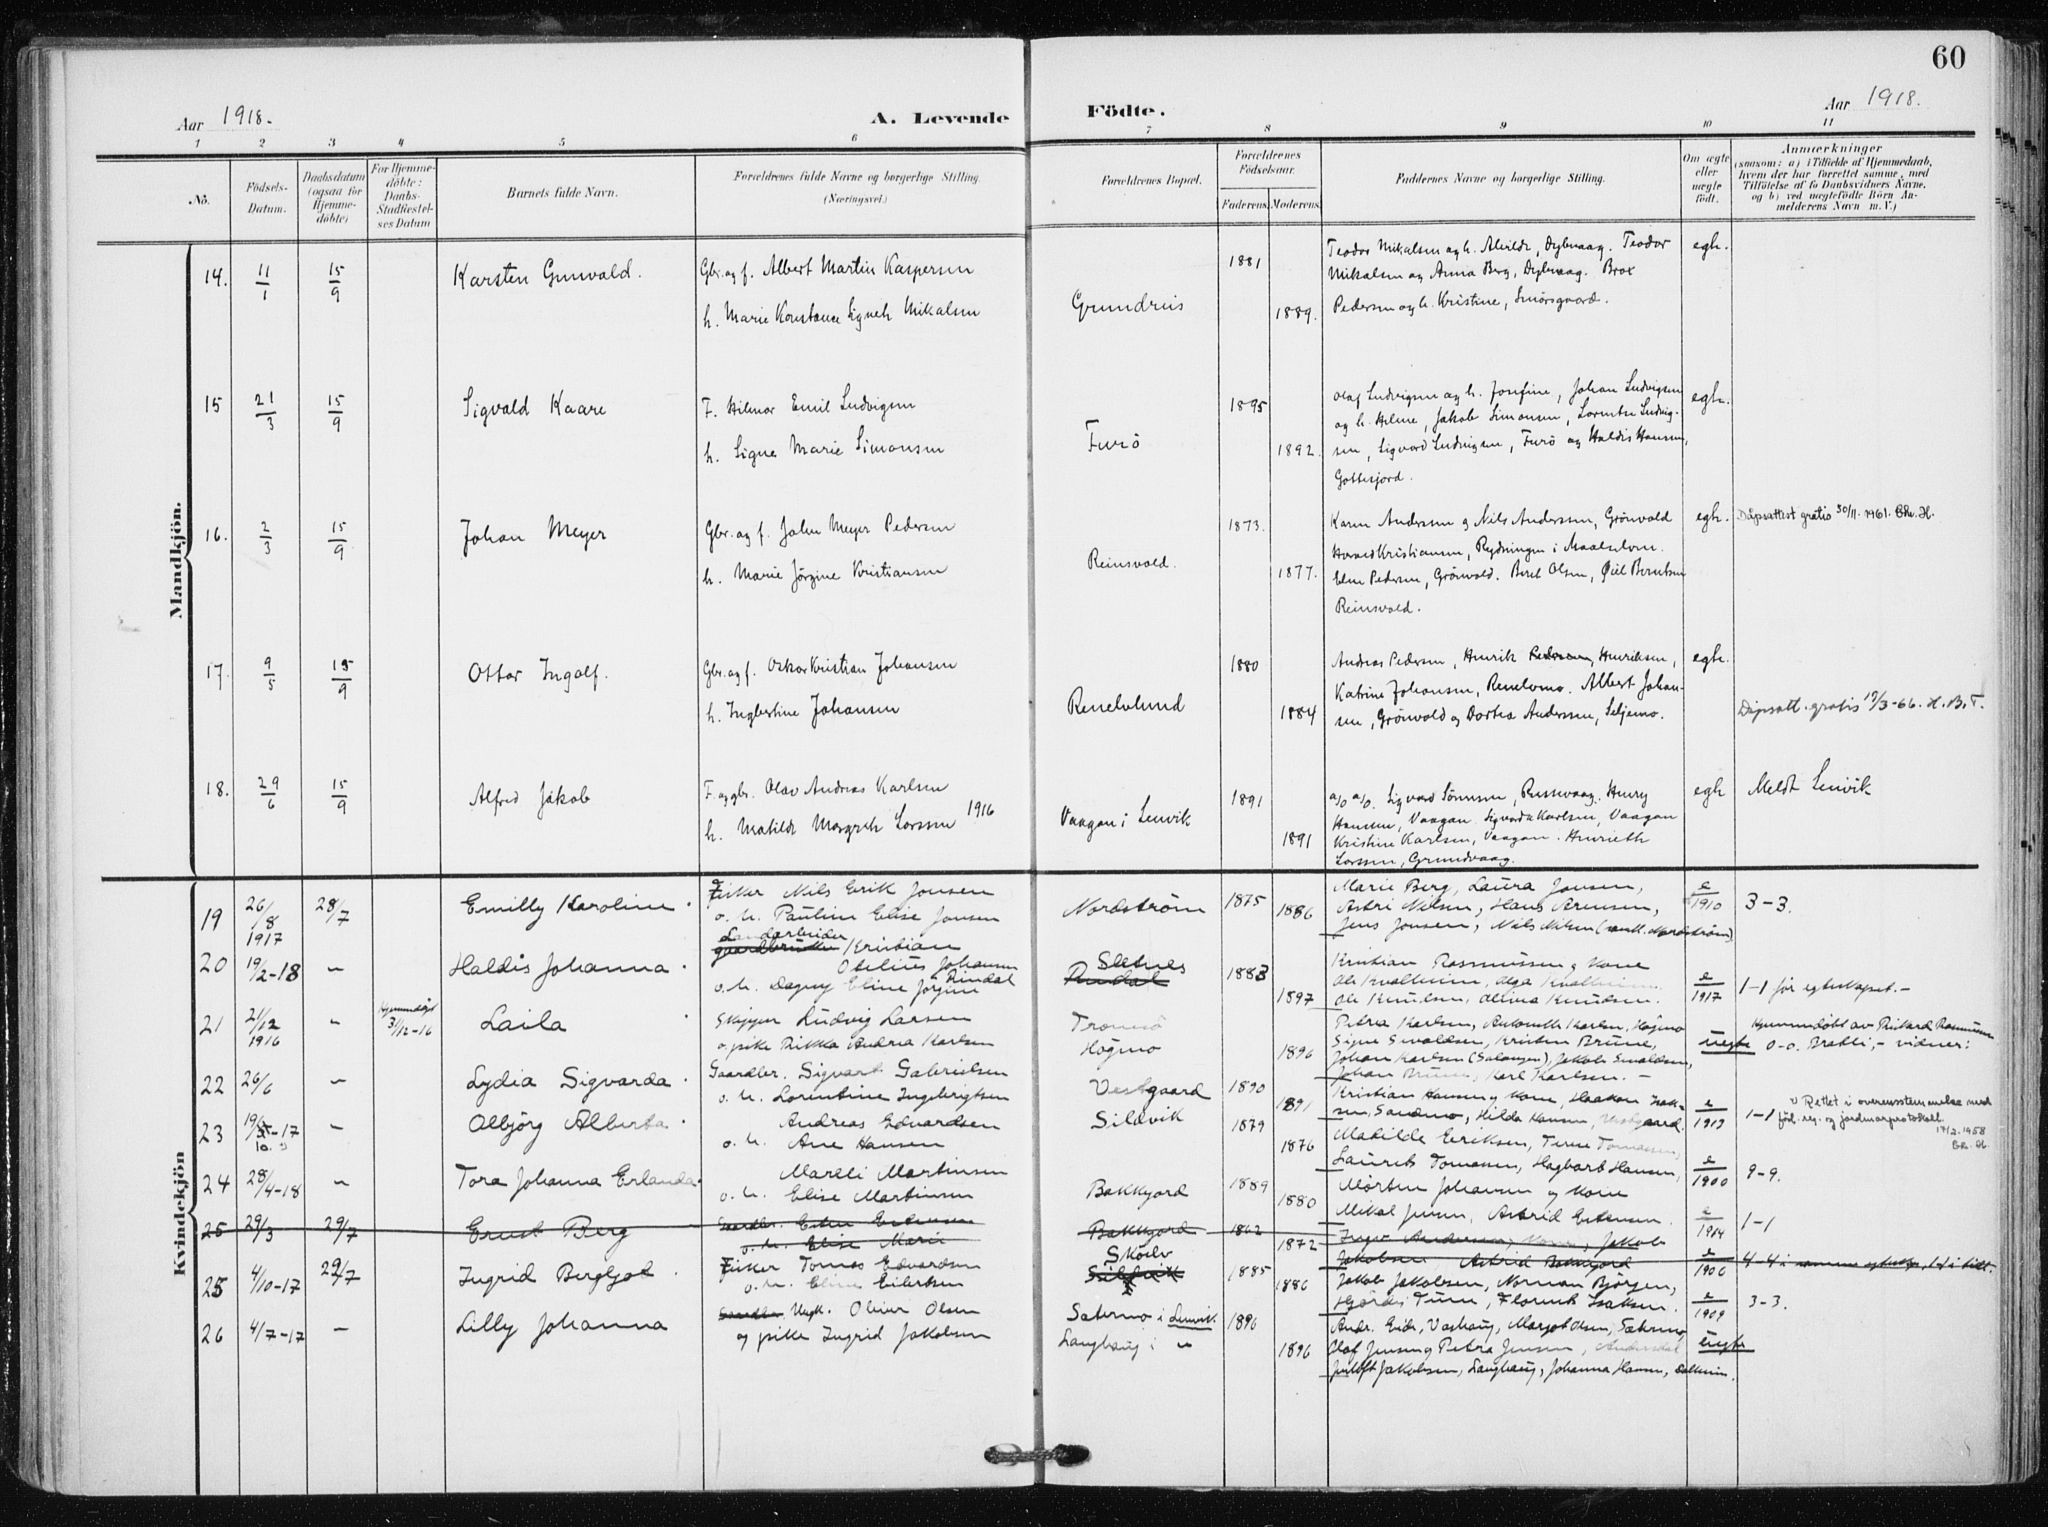 60
Aar 1918.
A. Levende Födte.
Aar 1918.
1 2 3 4 5 6 7 8 9 10 11
No.
Födsels-Datum.
Daabsdatum (ogsaa for Hjemme-döbte)
For Hjemme-döbte: Daabs-Stadfæstel-ses Datum
Barnets fulde Navn.
Forældrenes fulde Navne og borgerlige Stilling. (Næringsvei.)
Forældrenes Bopæl.
Forældrenes Födselsaar.
Faderens. Moderens.
Faddernes Navne og borgerlige Stilling.
Om ægte eller uægte födt.
Anmærkninger
(saasom: a) i Tilfælde af Hjemmedaab,
hvem der har forrettet samme, med
Tilföielse af to Daabsvidners Navne.
og b) ved uægtefödte Börn An-
melderens Navn m. V.)
Mandkjön.
14. 11/1 15/9 Karsten Gunvald. Gbr. og f. Albert Martin Kaspersen
h. Marie Konstance Signeh Mikalsen
Grundreis 1881 1889.
Teodor Mikalsen og h. Alvilde, Dybvaag. Teodor
Mikalsen og Anna Berg, Dybvaag. Brox
Pedersen og h. Kristine, Smörsgaard.
egh.
15 21/3 15/9 Sigvald Kaare F. Hilmar Emil Ludvigsen
h. Signe Marie Simonsen
Furö 1895 1892.
Olaf Ludvigsen og h. Josefine, Johan Ludvigsen
og h. Helene, Jakob Simonsen, Lorentse Ludvig-
sen, Sigvard Ludvigsen, Furö og Haldis Hansen,
Gottesjord.
egh.
16. 2/3 15/9 Johan Meyer Gbr. og f. Johan Meyer Pedersen
h. Marie Jörgine Kristiansen
Reinsvold. 1873. 1877.
Karen Andersen og Nils Anderssen, Grönvold
Kristiansen, Rydningen i Maalselven.
Pedersen, Grönvold. Berit Olsen, Berntsen
Reinsvold.
egh. Dåpsattest gratis 30/11. 1961.
17. 9/5 15/9 Ottar Ingolf. Gbr. og f. Oskar Kristian Johansen
h. Ingbertine Johansen
Renelvlund 1880 1884
Andreas Pedersen, Henrik Pedersen, Henriksen,
Katrine Johansen, Renelvmo. Albert Johan-
sen, Grönvold og Dortea Anderssen, Seljemo.
egh. Dåpsatt. gratis 19/3-66. H. B. T.
18. 29/6 15/9 Alfred Jakob F. og gbr. Olav Andreas Karlsen
h. Matilde Margreth Larssen 1916
Vaagan i Lenvik 1891 1891
Sigvard Tönnesen, Russevaag. Henry
Hansen, Vaagan. Karlsen, Vaagan
Kristine Karlsen, Vaagan. Henrieth
Larssen, Grundvaag.
egh Meldt Lenvik
Kvindekjön
19 26/8 1917 28/7 Emilly Karoline. Fisker Nils Erik Jonsen
o. h. Pauline Elise Jonsen
Nordström 1875 1886
Marie Berg, Laura Jonsen,
Astri Nilsen, Hans Arensen,
Jens Jonsen, Nils Nilsen
e/1910 3-3.
20 19/2-18 — Haldis Johanna. Landarbeider gaardbruker Kristian
Otelius Johansen
o. h. Dagny Eline Jörgine Rindal
Sletnes Rindal 1883 1897
Kristian Rasmussen og Kone
Ole Kvalheim, Olga Kvalheim.
Ole Knudsen, Olina Knudsen.
e/1917 1-1 för egteskapet.-
21 21/12 1916 — Hjemmedöpt 31/12-16 Laila Skipper Ludvig Larsen
o. pike Rikka Andrea Karlsen
Tromsö
Högmo 1896
Petra Karlsen, Karlsen, Högmo
Signe Sivaldsen, Kristen Brune,
Johan Karlsen (Salangen), Jakob Sivaldsen,
Johan Brune, Karl Karlsen.-
uegte 0-0. Hjemmedöbt av Rikard Rasmussen
Bratli,- vidner:
22 26/6 — Lydia Sigvarda. Gaardbr. Sigvart Gabrielsen
o. h. Lorentine Ingebrigtsen
Vestgaard 1890 1891
Kristian Hansen og Kone, Haakon Isak-
sen, Sandmo, Hilda Hansen, Vestgaard.
e/1913 1-1
23 19/5-17 — Olbjörg Alberta. Andreas Edvardsen
o. h. Ane Hansen
Sildvik 1879 1876
Matilde Eriksen, Tomassen,
Laurits Tomassen, Hagbart Hansen,
e/1900 9-9.
v Rettet i overensstemmelse med
föd. reg. og jordmorprotokoll.
17/2-1958
24 28/4-18 — Tora Johanna Erlanda. Mareli Martinsen
o. h. Elise Martinsen
Bakkejord 1889 1880
Morten Johansen og Kone
Mikal Jensen, Astrid Estensen.
e/1914 1-1
25 29/3 29/7 Ernst Berg Gaardbr. Esten Estensen
o. h. Elise Marie
Bakkejord 1862 1872
Inger Andersen, Kone, Jakob
Jakobsen Astrid Bakkejord
e/1906
25 4/10-17 29/7 Ingrid Bergljot. Fisker Tomas Edvardsen
o. h. Eline Eilertsen
Skjelv Sildvik 1885 1886
Jakob Jakobsen, Norman Björgen,
Hjördis Tune, Florents Isaksen.
e/1909 3-3.
26 4/7-17 — Lilly Johanna Gaardbr. Ungk. Oliver Olsen
og pike Ingrid Jakobsen
Sætermo i Lenvik.
Langhaug i " 1896 1896
Andr. Eidr, Vashaug, Margot Olsen, Sætermo,
Olaf Jensen og Petra Jensen,
Jakobsen, Langhaug, Johanna Hansen,
uegte